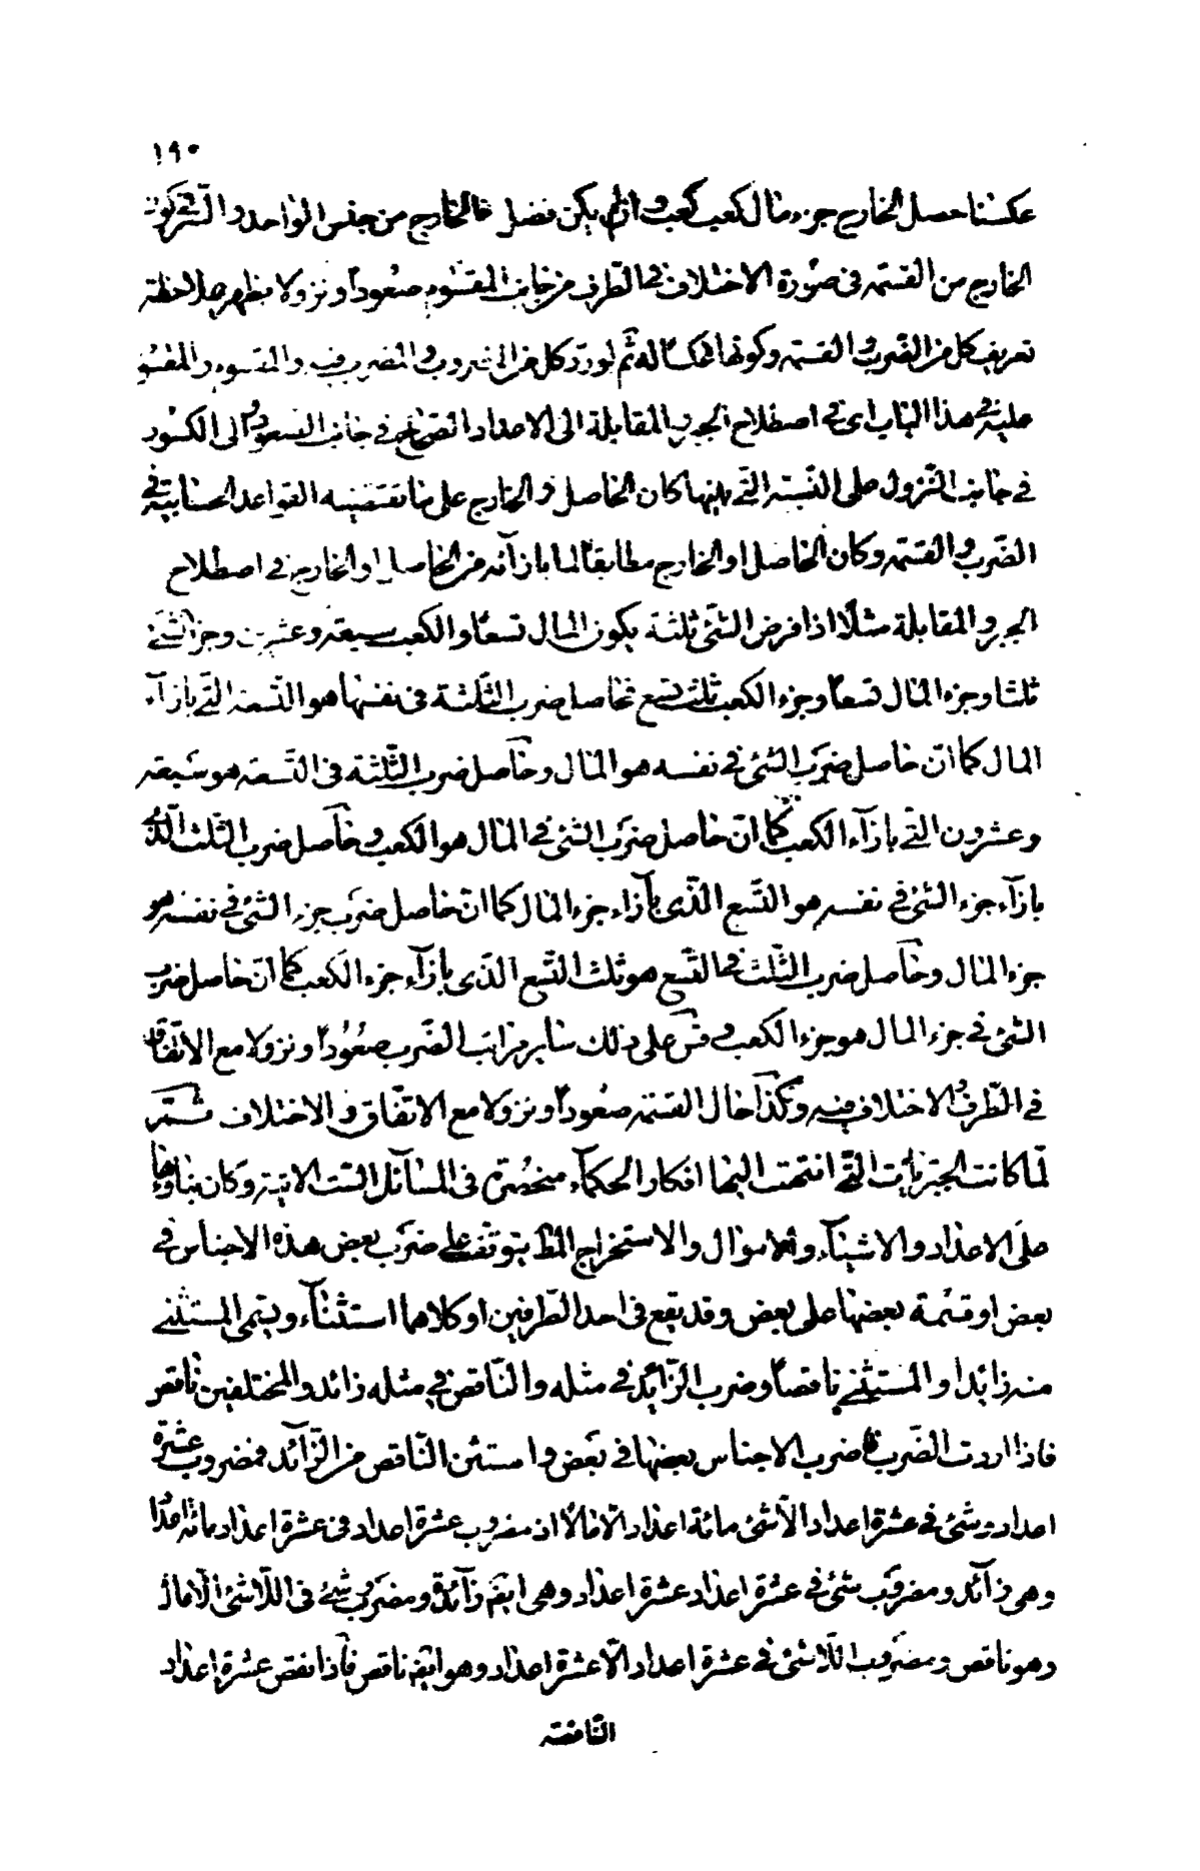 ١٩٠
عكسنا حصل الخارج جزء مال كعب كعب وان لم يكن فضل فالخارج من جنس الواحد والسّر في كون
الخارج من القسمة فى صورة الاختلاف فى الطّرف من جانب المقسوم صعوداً ونزولا يظهر بملاحظة
تعريف كل من الضّرب والقسمة وكونها ثم لو ردّ كل من المضروب والمضروب فيه والمقسوم والمقسوم
عليه فى هذا الباب اى فى اصطلاح الجبر والمقابلة الى الاعداد الصّحاح فى جانب الصعود والى الكسور
فى جانب النّزول على النّسبة الّتى بينها كان الحاصل والخارج على ما تقتضيه القواعد الحسابيّة فى
الضّرب والقسمة وكان الحاصل او الخارج مطابقاً لما بازآئه من الحاصل او الخارج فى اصطلاح
الجبر والمقابلة مثلًا اذا فرض الشّئ ثلثة يكون المال تسعاً والكعب سبعة وعشرين وجزء الشّئ
ثلثا وجزء المال تسعاً وجزء الكعب ثلث تسع فحاصل ضرب الثّلثة فى نفسها هو التّسعة الّتى بازآء
المال كما انّ حاصل ضرب الشّئ فى نفسه هو المال وحاصل ضرب الثّلثة فى التّسعة هو سبعة
وعشرون الّتى بازآء الكعب كما انّ حاصل ضرب الشّئ فى المال هو الكعب وحاصل ضرب الثّلث الّذى
بازآء جزء الشّئ فى نفسه هو التّسع الّذى بازآء جزء المال كما انّ حاصل ضرب جزء الشّئ فى نفسه هو
جزء المال وحاصل ضرب الثّلث فى التّسع هو ثلث التّسع الّذى بازآء جزء الكعب كما انّ حاصل ضرب
الشّئ فى جزء المال هو جزء الكعب وقس على ذلك سائر مراتب الضّرب صعوداً ونزولا مع الاتّفاق
فى الطّرف والاختلاف فيه وكذا حال القسمة صعوداً ونزولا مع الاتّفاق والاختلاف ثمّ
لمّا كانت الجبريّات الّتى انتهت اليها افكار الحكمآء منحصرة فى المسآئل السّت الاتية وكان بناؤها
على الاعداد والاشيآء والاموال والاستخراج المظ يتوقف على ضرب بعض هذه الاجناس فى
بعض او قسمة بعضها على بعض وقد يقع فى احد الطّرفين او كلاهما استثنآء ويسمى المستثنى
منه زائدا والمستثنى ناقصاً وضرب الزّائد فى مثله والنّاقص فى مثله زائد والمختلفين ناقص
فاذا اردت الضّرب فاضرب الاجناس بعضها فى بعض واستثن النّاقص من الزّآئد فمضروب عشرة
اعداد وشئ فى عشرة اعداد الّا شئ مائة اعداد الّا مالًا اذ مضروب عشرة اعداد فى عشرة اعداد مائة اعداد
وهى زآئد ومضروب شئ فى عشرة اعداد عشرة اعداد وهى ايضً زآئدة ومضروب شئ فى اللّا شئ الّا مال
وهو ناقص ومضروب اللّا شئ فى عشرة اعداد الّا عشرة اعداد وهو ايضً ناقص فاذا نقص عشرة اعداد
النّاقصة